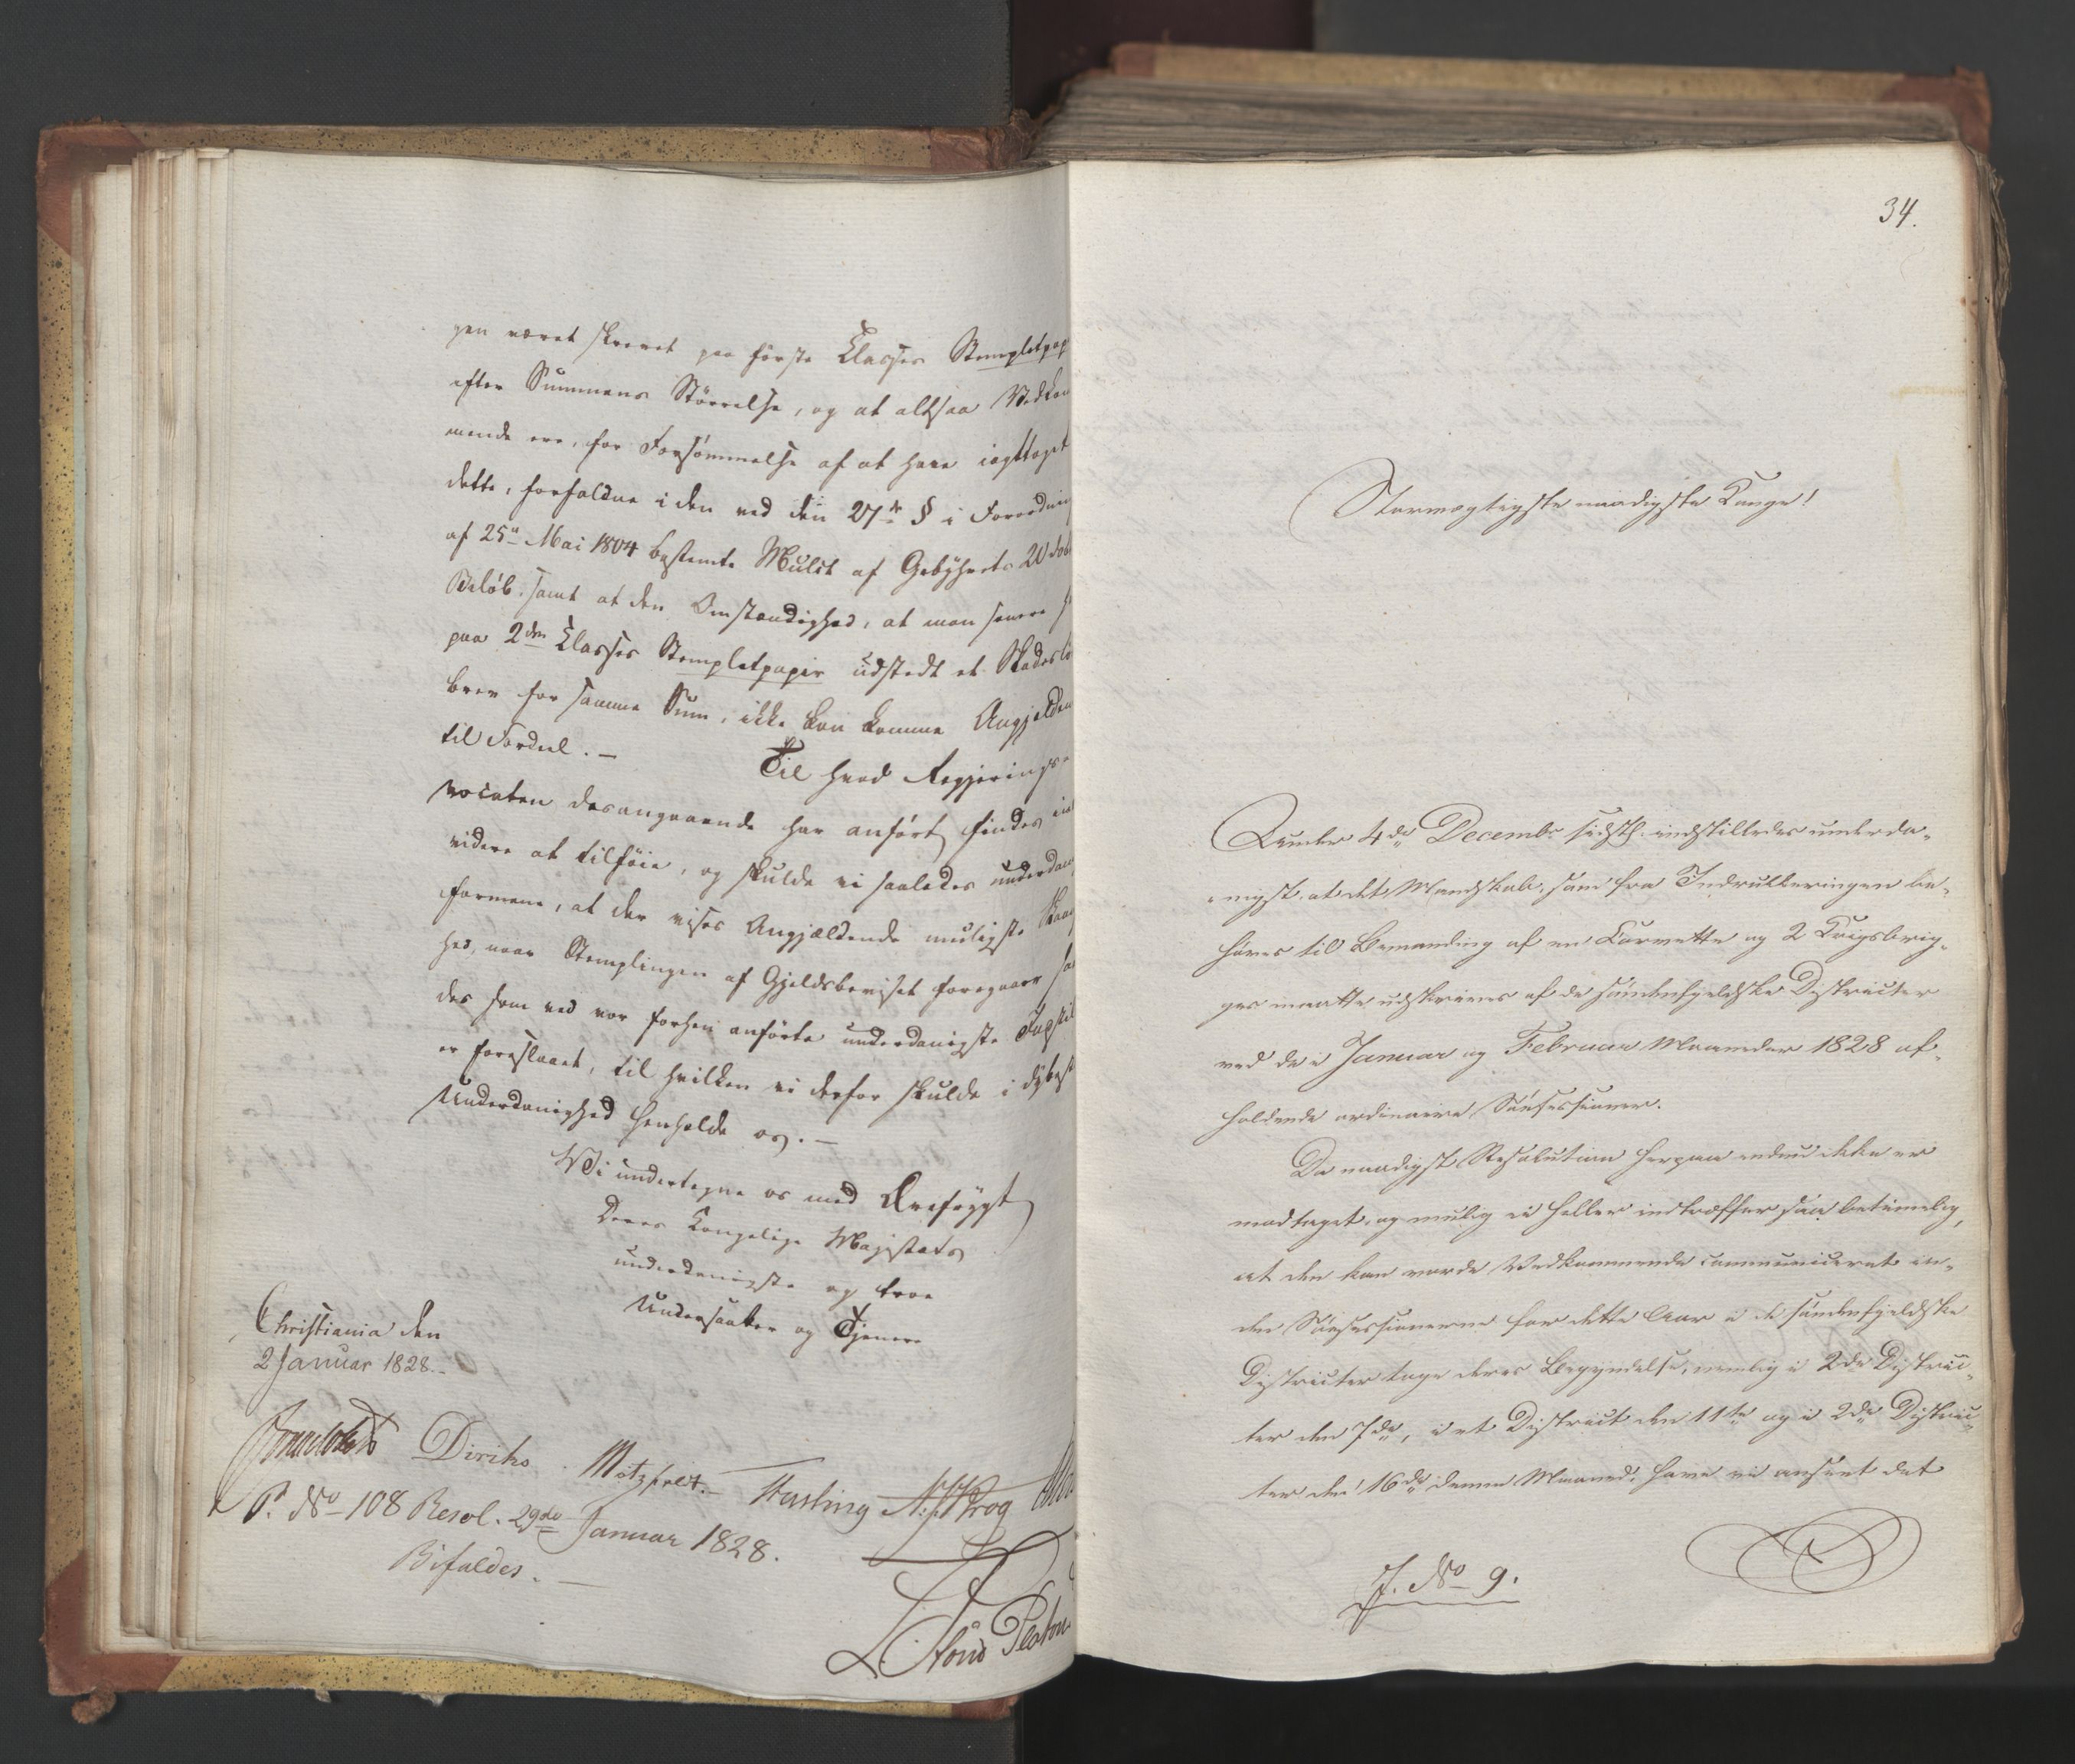 gen været skrevet paa første Classes Stempletpap
efter Summens Størrelse, og at altsaa Vedkom
mende ere, for Forsømmelse af at have iagttaget
dette, forfaldne i den ved den 27de § i Forordning
af 25d Mai 1804 bestemte Mulct af Gebyhrets 20 dob
Beløb, samt at den Omstændighed, at man senere h
paa 2den Classes Stempletpapir udstedt et Skadeslø
brev for samme Sum, ikke kan komme Angjelden
til Fordeel. —
Til hvad Regjerings
vocaten desangaaende har anført findes in
videre at tilføie, og skulde vi saaledes underdan
formene, at der vises Angjældende muligste Skaan
hed, naar Stemplingen af Gjeldsbeviset foregaaer saa
des som ved vor forhen anførte underdanigste Indstil
er foreslaaet, til hvilken vi derfor skulde i dybest
Underdanighed henholde os. —
Vi undertegne os med Ærefrygt
Deres Kongelige Majestæts
underdanigste og troe
Undersaatter og Tjenere
Christiania den
2 Januar 1828.
Diriks Motzfeldt. Fasting Krog
P. No 108 Resol. 29de Januar 1828.
Bifaldes. —
Platou
34.
Stormægtigste naadigste Konge!
Under 4de Decembr sidstl. indstilledes underda-
nigst, at det Mandskab, som fra Indrulleringen be-
høves til Bemanding af en Corvette og 2 Krigsbrig-
ger maatte udskrives af de søndenfjeldske Districter
ved de i Januar og Februar Maaneder 1828 af-
holdende ordinaire Søesessioner.
Da naadigst Resolution herpaa endnu ikke er
modtaget, og mulig ei heller indtræffer saa betimelig,
at den kan vorde Vedkommende communiceret in-
den Søesessionerne for dette Aar i de søndenfjeldske
Districter tage deres Begyndelse, nemlig i 2de Distric-
ter den 7de, i et District den 11te og i 2de Distric-
ter den 16de denne Maaned, have vi anseet det
J. No 9.